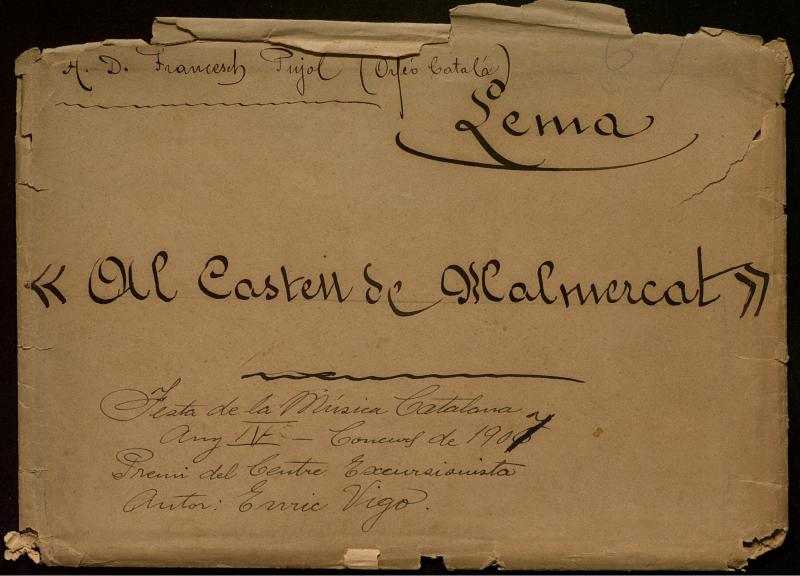 A. D. Francesch Pujol (Orfeó Catalá)
Lema
« Al Castell de Malmercat »
Festa de la Música Catalana
Any IV - Concurs de 1907
Premi del Centre Excursionista
Autor: Enric Vigo.